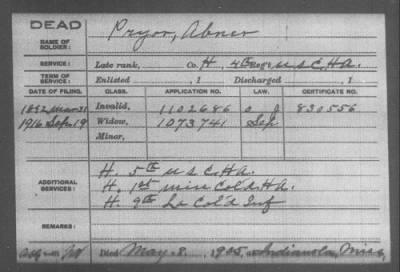 DEAD
NAME OF SOLDIER: Pryor, Abner
SERVICE: Late rank, Co. H, 4th Reg't U S C. H A.
TERM OF SERVICE: Enlisted , 1 Discharged , 1
DATE OF FILING. CLASS. APPLICATION NO. LAW. CERTIFICATE NO.
1892 Mar 31 Invalid, 1102686 O J 830556
1916 Sep 19 Widow, 1073741 Sep
Minor,
ADDITIONAL SERVICES: H. 5th U S C. H A.
H. 1st Miss Col'd H A.
H. 9th La Col'd Inf
REMARKS:
Died May 8, 1905, at Indianola, Miss,